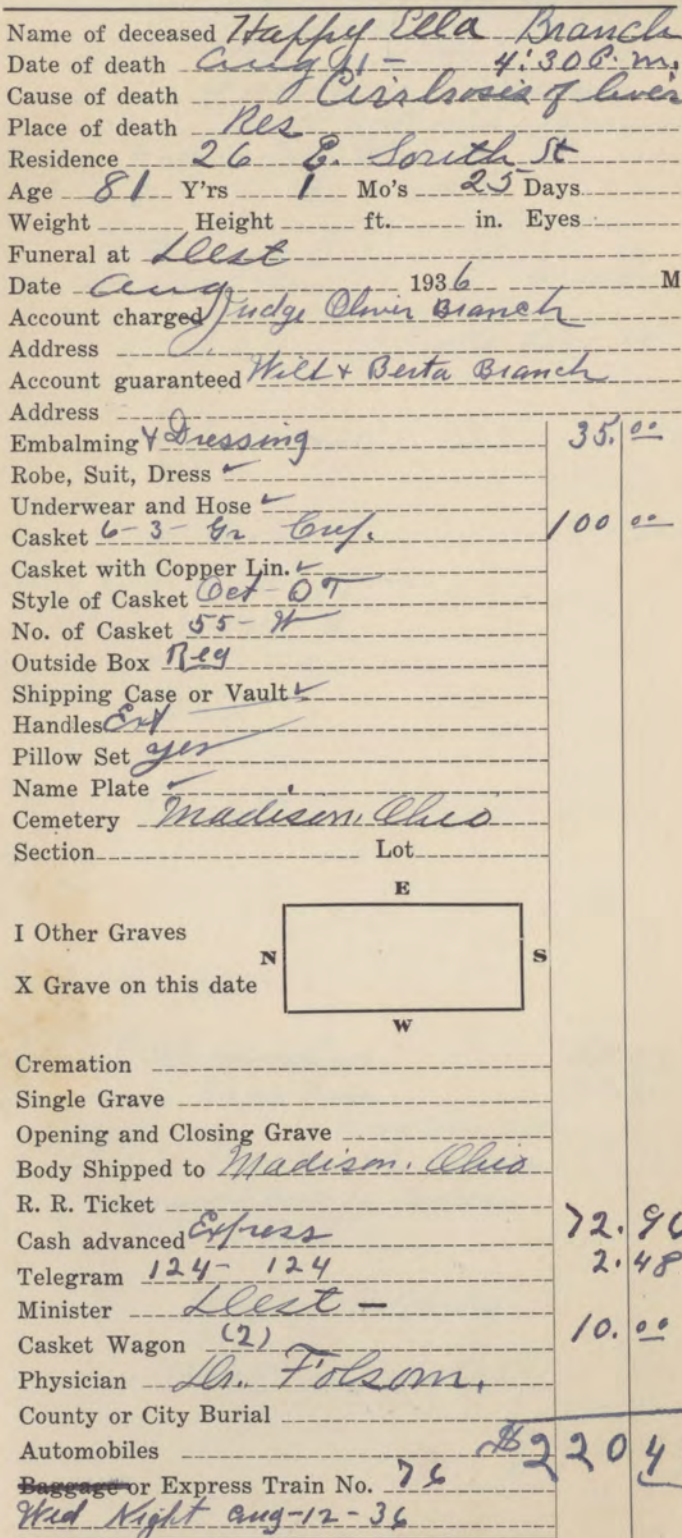 Name of deceased Happy Ella Branch
Date of death Aug 11 - 4:30 P.m.
Cause of death Cirrhosis of liver
Place of death Res
Residence 26 E. South St
Age 81 Y'rs 1 Mo's 25 Days
Weight Height ft. in. Eyes
Funeral at Dest
Date Aug 1936 M
Account charged Judge Oliver Branch
Address
Account guaranteed Will + Berta Branch
Address
Embalming & Dressing 35.00
Robe, Suit, Dress ✓
Underwear and Hose ✓
Casket 6-3- Gr 100 00
Casket with Copper Lin. ✓
Style of Casket Oct - OT
No. of Casket 55-W
Outside Box Reg
Shipping Case or Vault ✓
Handles Ext
Pillow Set yes
Name Plate ✓
Cemetery Madison, Ohio
Section Lot
E
I Other Graves
N S
X Grave on this date
W
Cremation
Single Grave
Opening and Closing Grave
Body Shipped to Madison. Ohio
R. R. Ticket
Cash advanced Express 72.90
Telegram 124- 124 2.48
Minister Dest -
Casket Wagon (2) 10.00
Physician Dr. Folsom.
County or City Burial
Automobiles $2204
Baggage or Express Train No. 76
Wed Night Aug-12-36